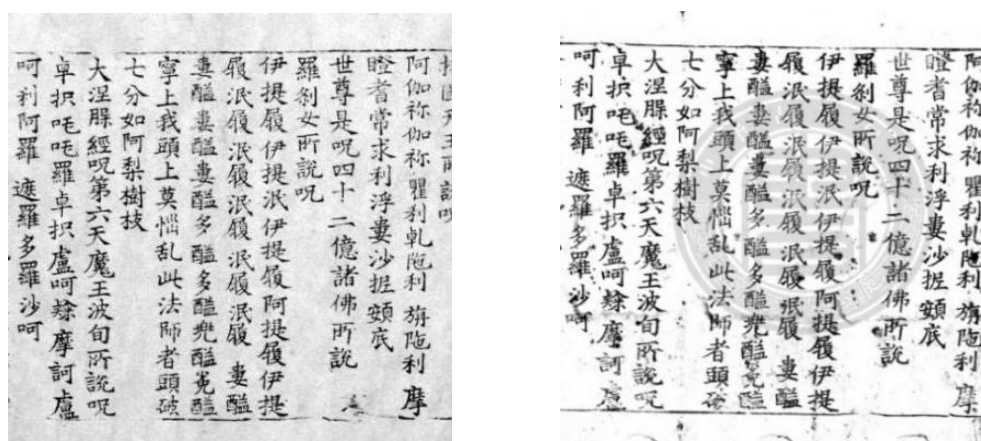 阿伽祢伽祢 瞿利乹陁利 旃陁利 摩
蹬耆常求利浮婁沙抳頞底
世尊是呪四十二億諸佛所説
羅刹女所説呪
伊提履伊提泯伊提履阿提履伊提
履泯履泯履泯履泯履 婁醯
婁醯婁醯婁醯多醯多醯兜醯㝹醯
寧上我頭上莫惱乱此法師者頭破
七分如阿梨樹枝
大涅槃經呪第六天魔王波旬所説呪
卓抧吒吒羅卓抧盧呵隸 摩訶盧
呵利阿羅 遮羅多羅沙呵
阿伽祢伽祢 瞿利乹陁利 旃陁利 摩
蹬耆常求利浮婁沙抳頞底
世尊是呪四十二億諸佛所説
羅刹女所説呪
伊提履伊提泯伊提履阿提履伊提
履泯履泯履泯履泯履 婁醯
婁醯婁醯婁醯多醯多醯兜醯㝹醯
寧上我頭上莫惱乱此法師者頭破
七分如阿梨樹枝
大涅槃經呪第六天魔王波旬所説呪
卓抧吒吒羅卓抧盧呵隸 摩訶盧
呵利阿羅 遮羅多羅沙呵